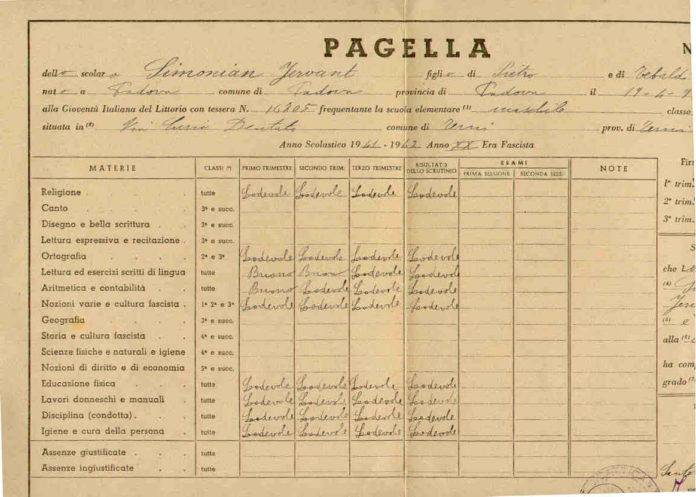 PAGELLA
N
dello scolaro Simonian Yervant figlio di Pietro e di Tebald
nato a Padova comune di Padova provincia di Padova il 19-4-9
alla Gioventù Italiana del Littorio con tessera N. 16205 frequentante la scuola elementare (1) maschile classe
situata in (2) Via Curio Dentato comune di Terni prov. di Terni
Anno Scolastico 1941 - 1942 Anno XX Era Fascista
MATERIE CLASSI (*) PRIMO TRIMESTRE SECONDO TRIM. TERZO TRIMESTRE RISULTATO DELLO SCRUTINIO ESAMI PRIMA SESSIONE SECONDA SESS. NOTE
Religione tutte Lodevole Lodevole Lodevole Lodevole
Canto 3ª e succ.
Disegno e bella scrittura 3ª e succ.
Lettura espressiva e recitazione 3ª e succ.
Ortografia 2ª e 3ª Lodevole Lodevole Lodevole Lodevole
Lettura ed esercizi scritti di lingua tutte Buono Buono Lodevole Lodevole
Aritmetica e contabilità tutte Buono Lodevole Lodevole Lodevole
Nozioni varie e cultura fascista 1ª 2ª e 3ª Lodevole Lodevole Lodevole Lodevole
Geografia 3ª e succ.
Storia e cultura fascista 4ª e succ.
Scienze fisiche e naturali e igiene 4ª e succ.
Nozioni di diritto e di economia 5ª e succ.
Educazione fisica tutte Lodevole Lodevole Lodevole Lodevole
Lavori donneschi e manuali tutte Lodevole Lodevole Lodevole Lodevole
Disciplina (condotta) tutte Lodevole Lodevole Lodevole Lodevole
Igiene e cura della persona tutte Lodevole Lodevole Lodevole Lodevole
Assenze giustificate tutte
Assenze ingiustificate tutte
Fir
1º trim.
2º trim.
3º trim.
S
che L
(4)
Yer
(5) e
alla (6) c
ha com
grado (7)